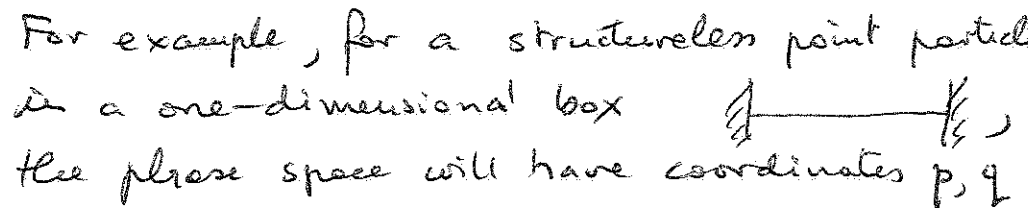 For example, for a structureless point particl
in a one-dimensional box ,
the phase space will have coordinates p, q